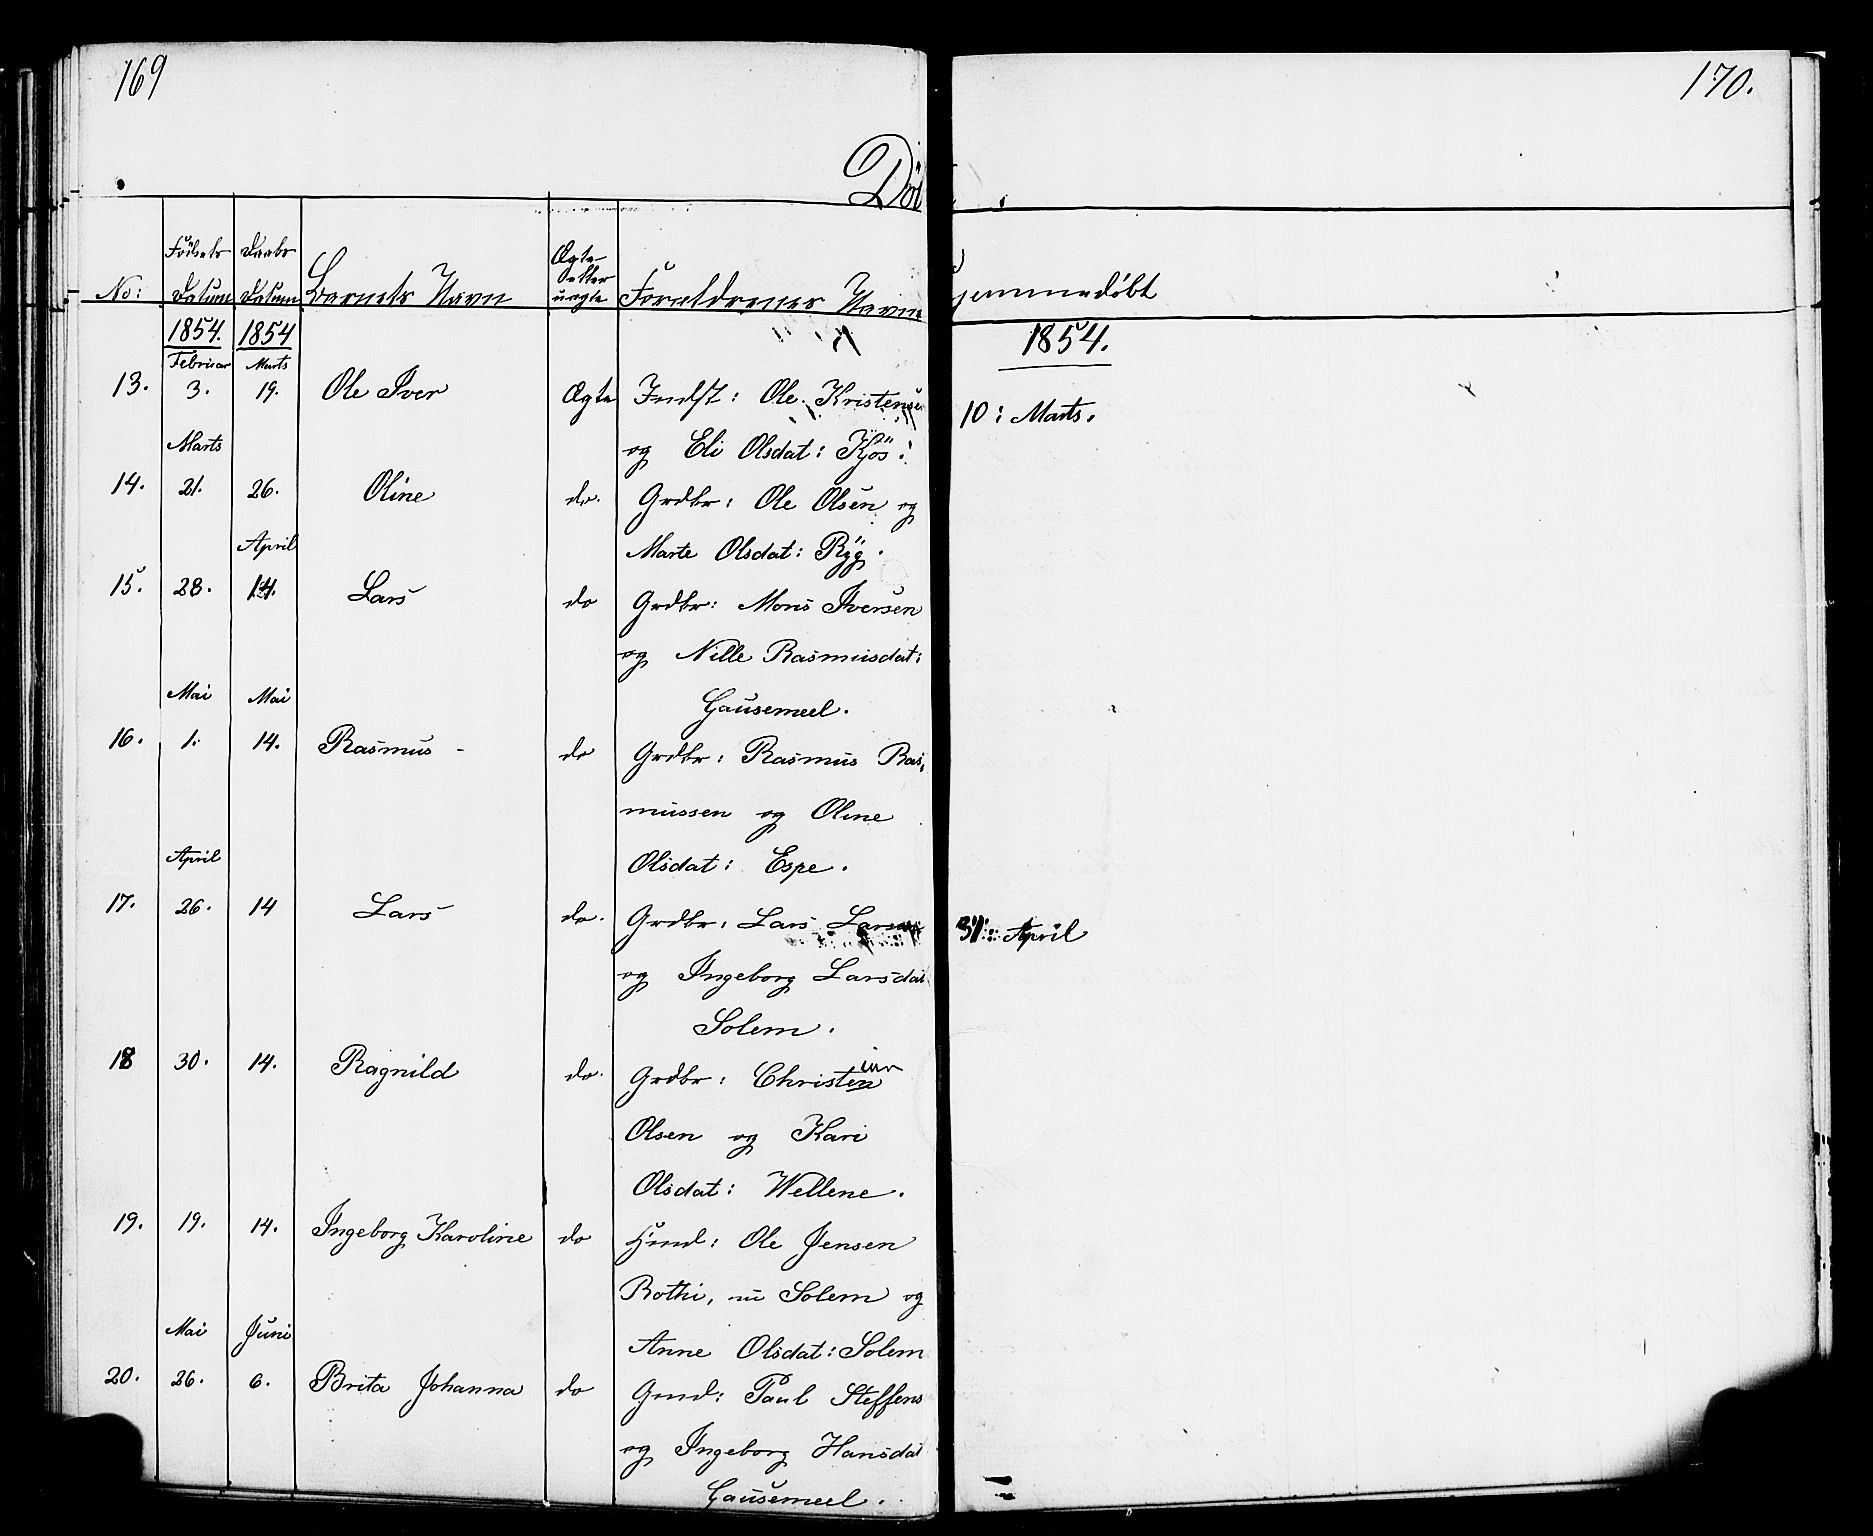 169
170.
Döb
No: Födsels Datum Daabs Datum Barnets Navn Ægte eller uægte Forældrenes Navne
jemmedöbt
1854. 1854 1854.
Februar Marts
13. 3. 19. Ole Iver Ægte Indst: Ole Kristense 10: Marts.
Marts og Eli Olsdat: Kjös.
14. 21. 26. Oline do. Grdbr: Ole Olsen og
April Marte Olsdat: Ryg.
15. 28. 14. Lars do Grdbr: Mons Iversen
og Nille Rasmusdat:
Mai Mai Gausemeel.
16. 1. 14. Rasmus do Grdbr: Rasmus Ras,
mussen og Oline
April Olsdat: Espe.
17. 26. 14 Lars do. Grdbr: Lars Larsen April
og Ingeborg Larsdat
Solem.
18 30. 14. Ragnild do. Grdbr: Christen
Olsen og Kari
Olsdat: Wellene.
19. 19. 14. Ingeborg Karoline do Hmd: Ole Jensen
Rothi, nu Solem og
Mai Juni Anne Olsdat: Solem
20. 26. 6. Brita Johanna do Gmd: Paul Steffens
og Ingeborg Hansdat
Gausemeel.